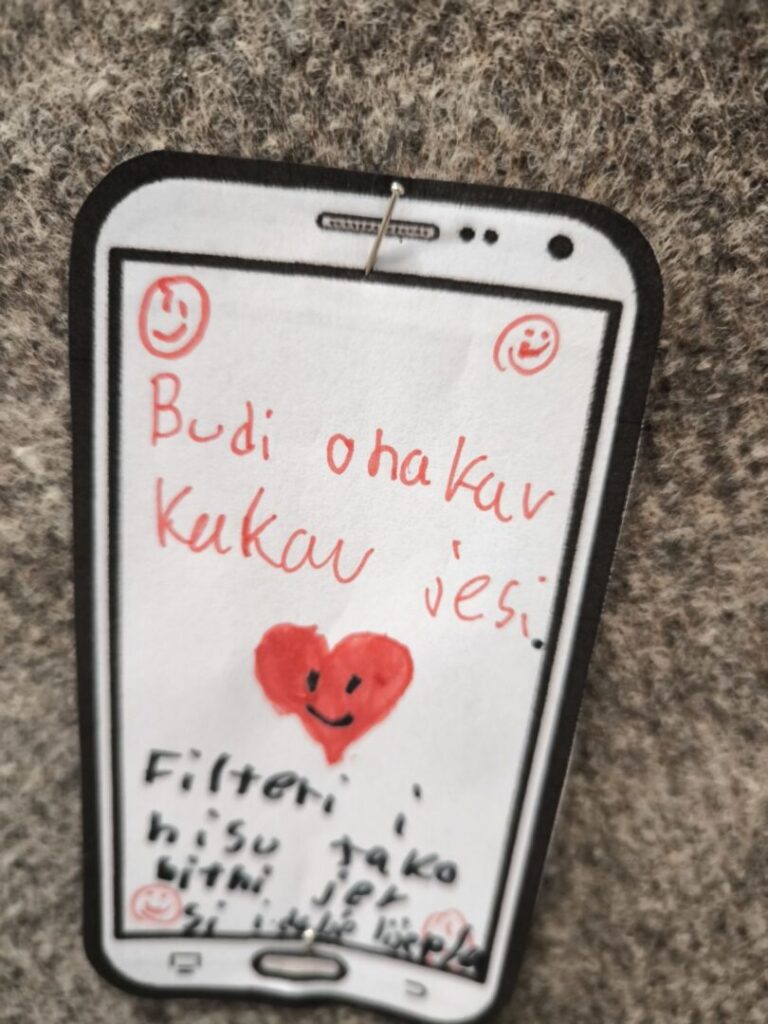 Budi onakav
kakav jesi.
Filteri i
nisu tako
bitni jer
si i dalje lijep/a